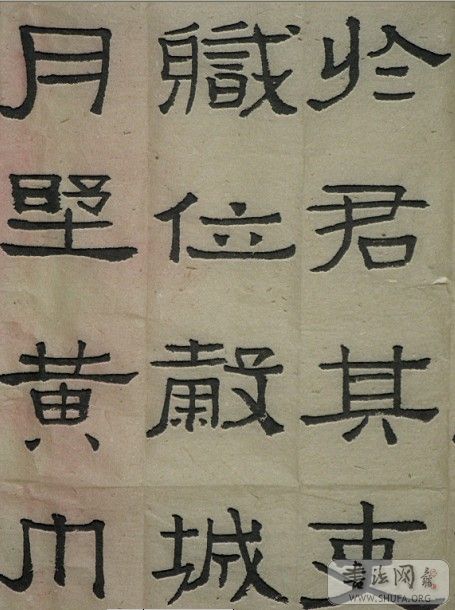 於君其
職位穀城
月墅黃巾
書法網
WWW.SHUFA.ORG